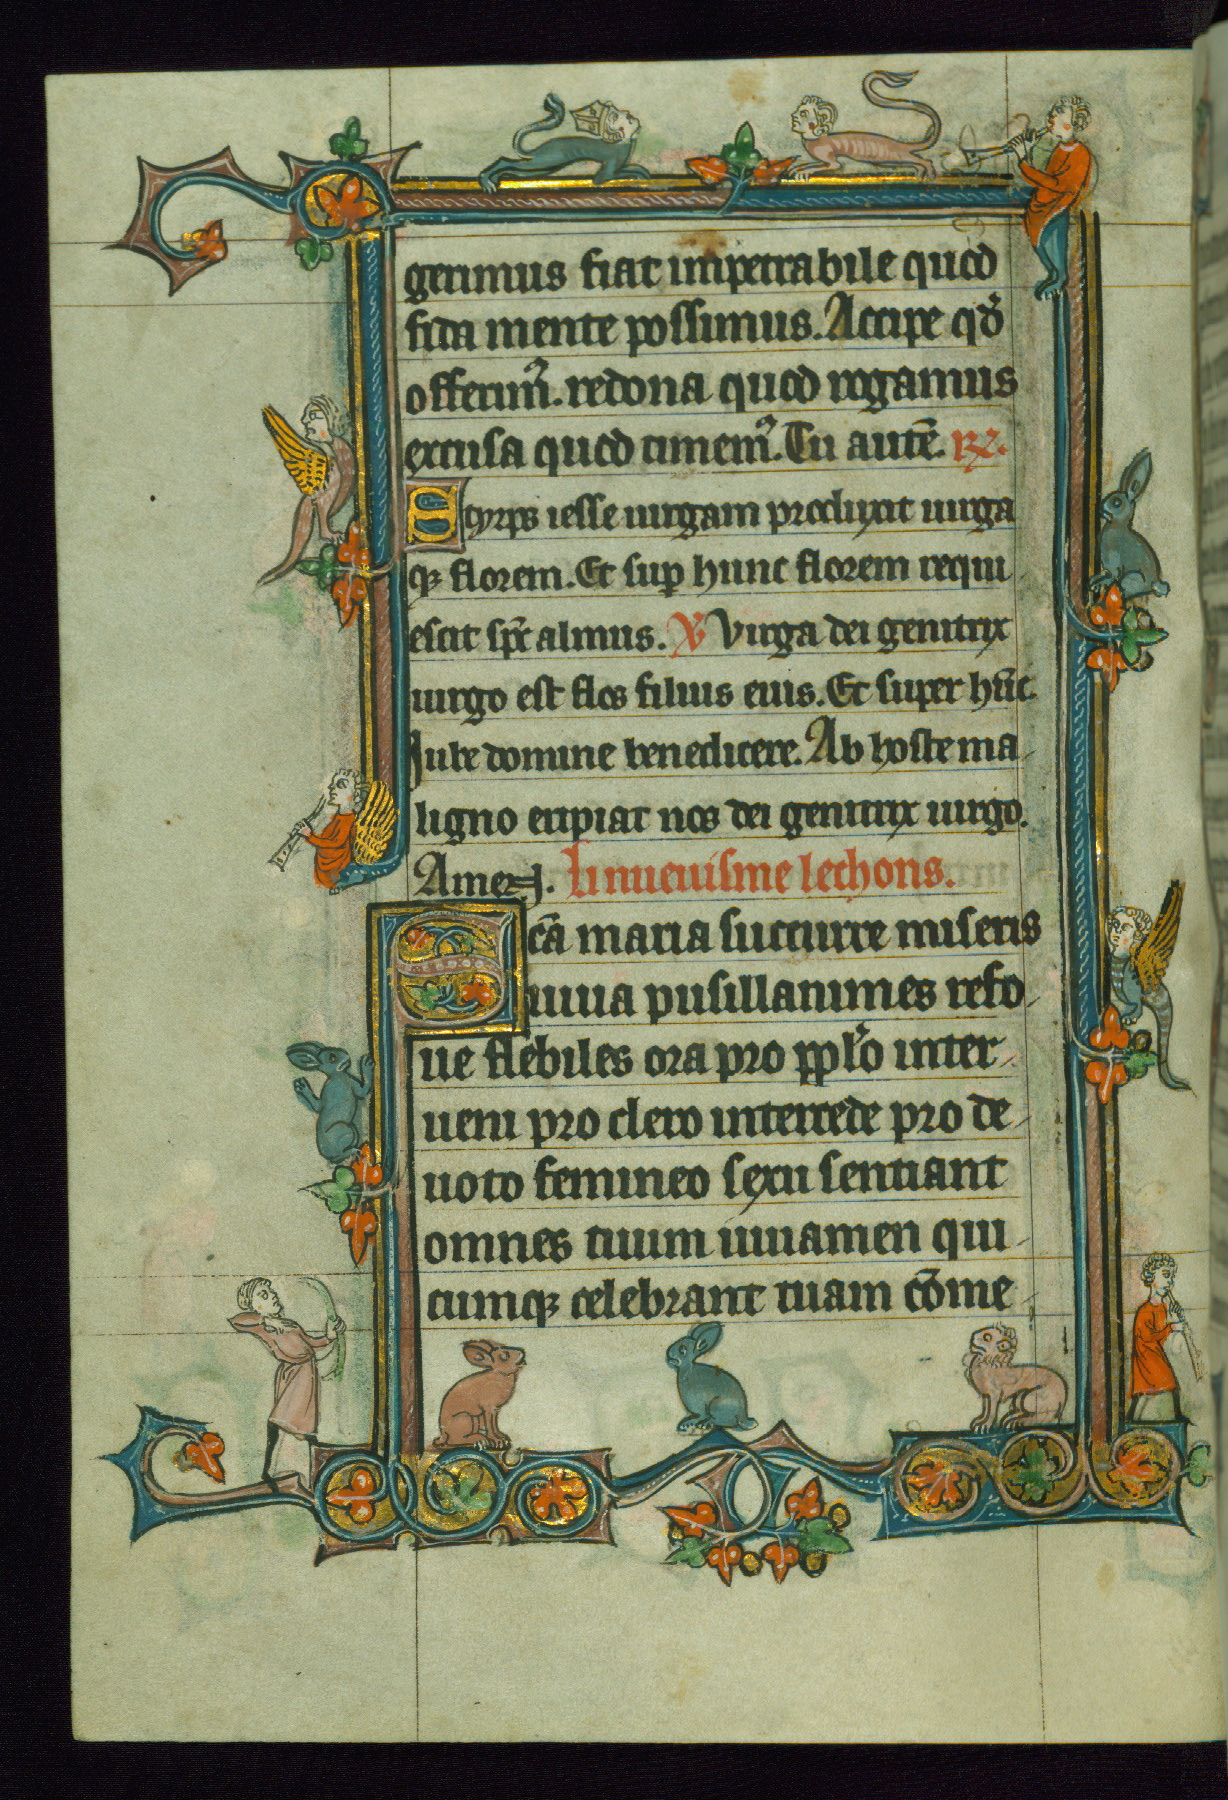 gerimus fiat impetrabile quod
fida mente possimus. Accipe qd̕
offerim᷒. redona quod rogamus
excusa quod timem᷒. Tu autē. R℣.
Styrps iesse uirgam produxit uirga
qꝫ florem. Et sup hunc florem requi
escit sp̄c almus. V̕ Virga dei genitrix
uirgo est flos filius eius. Et super hūc.
Iube domine benedicere. Ab hoste ma
ligno eripiat nos dei genitrix uirgo.
Amen. Li nueuisme lechons.
Scā maria succurre miseris
iuua pusillanimes refo
ue flebiles ora pro pp̄lo inter
ueni pro clero intercede pro de
uoto femineo sexu sentiant
omnes tuum iuuamen qui
cumqꝫ celebrant tuam cōme